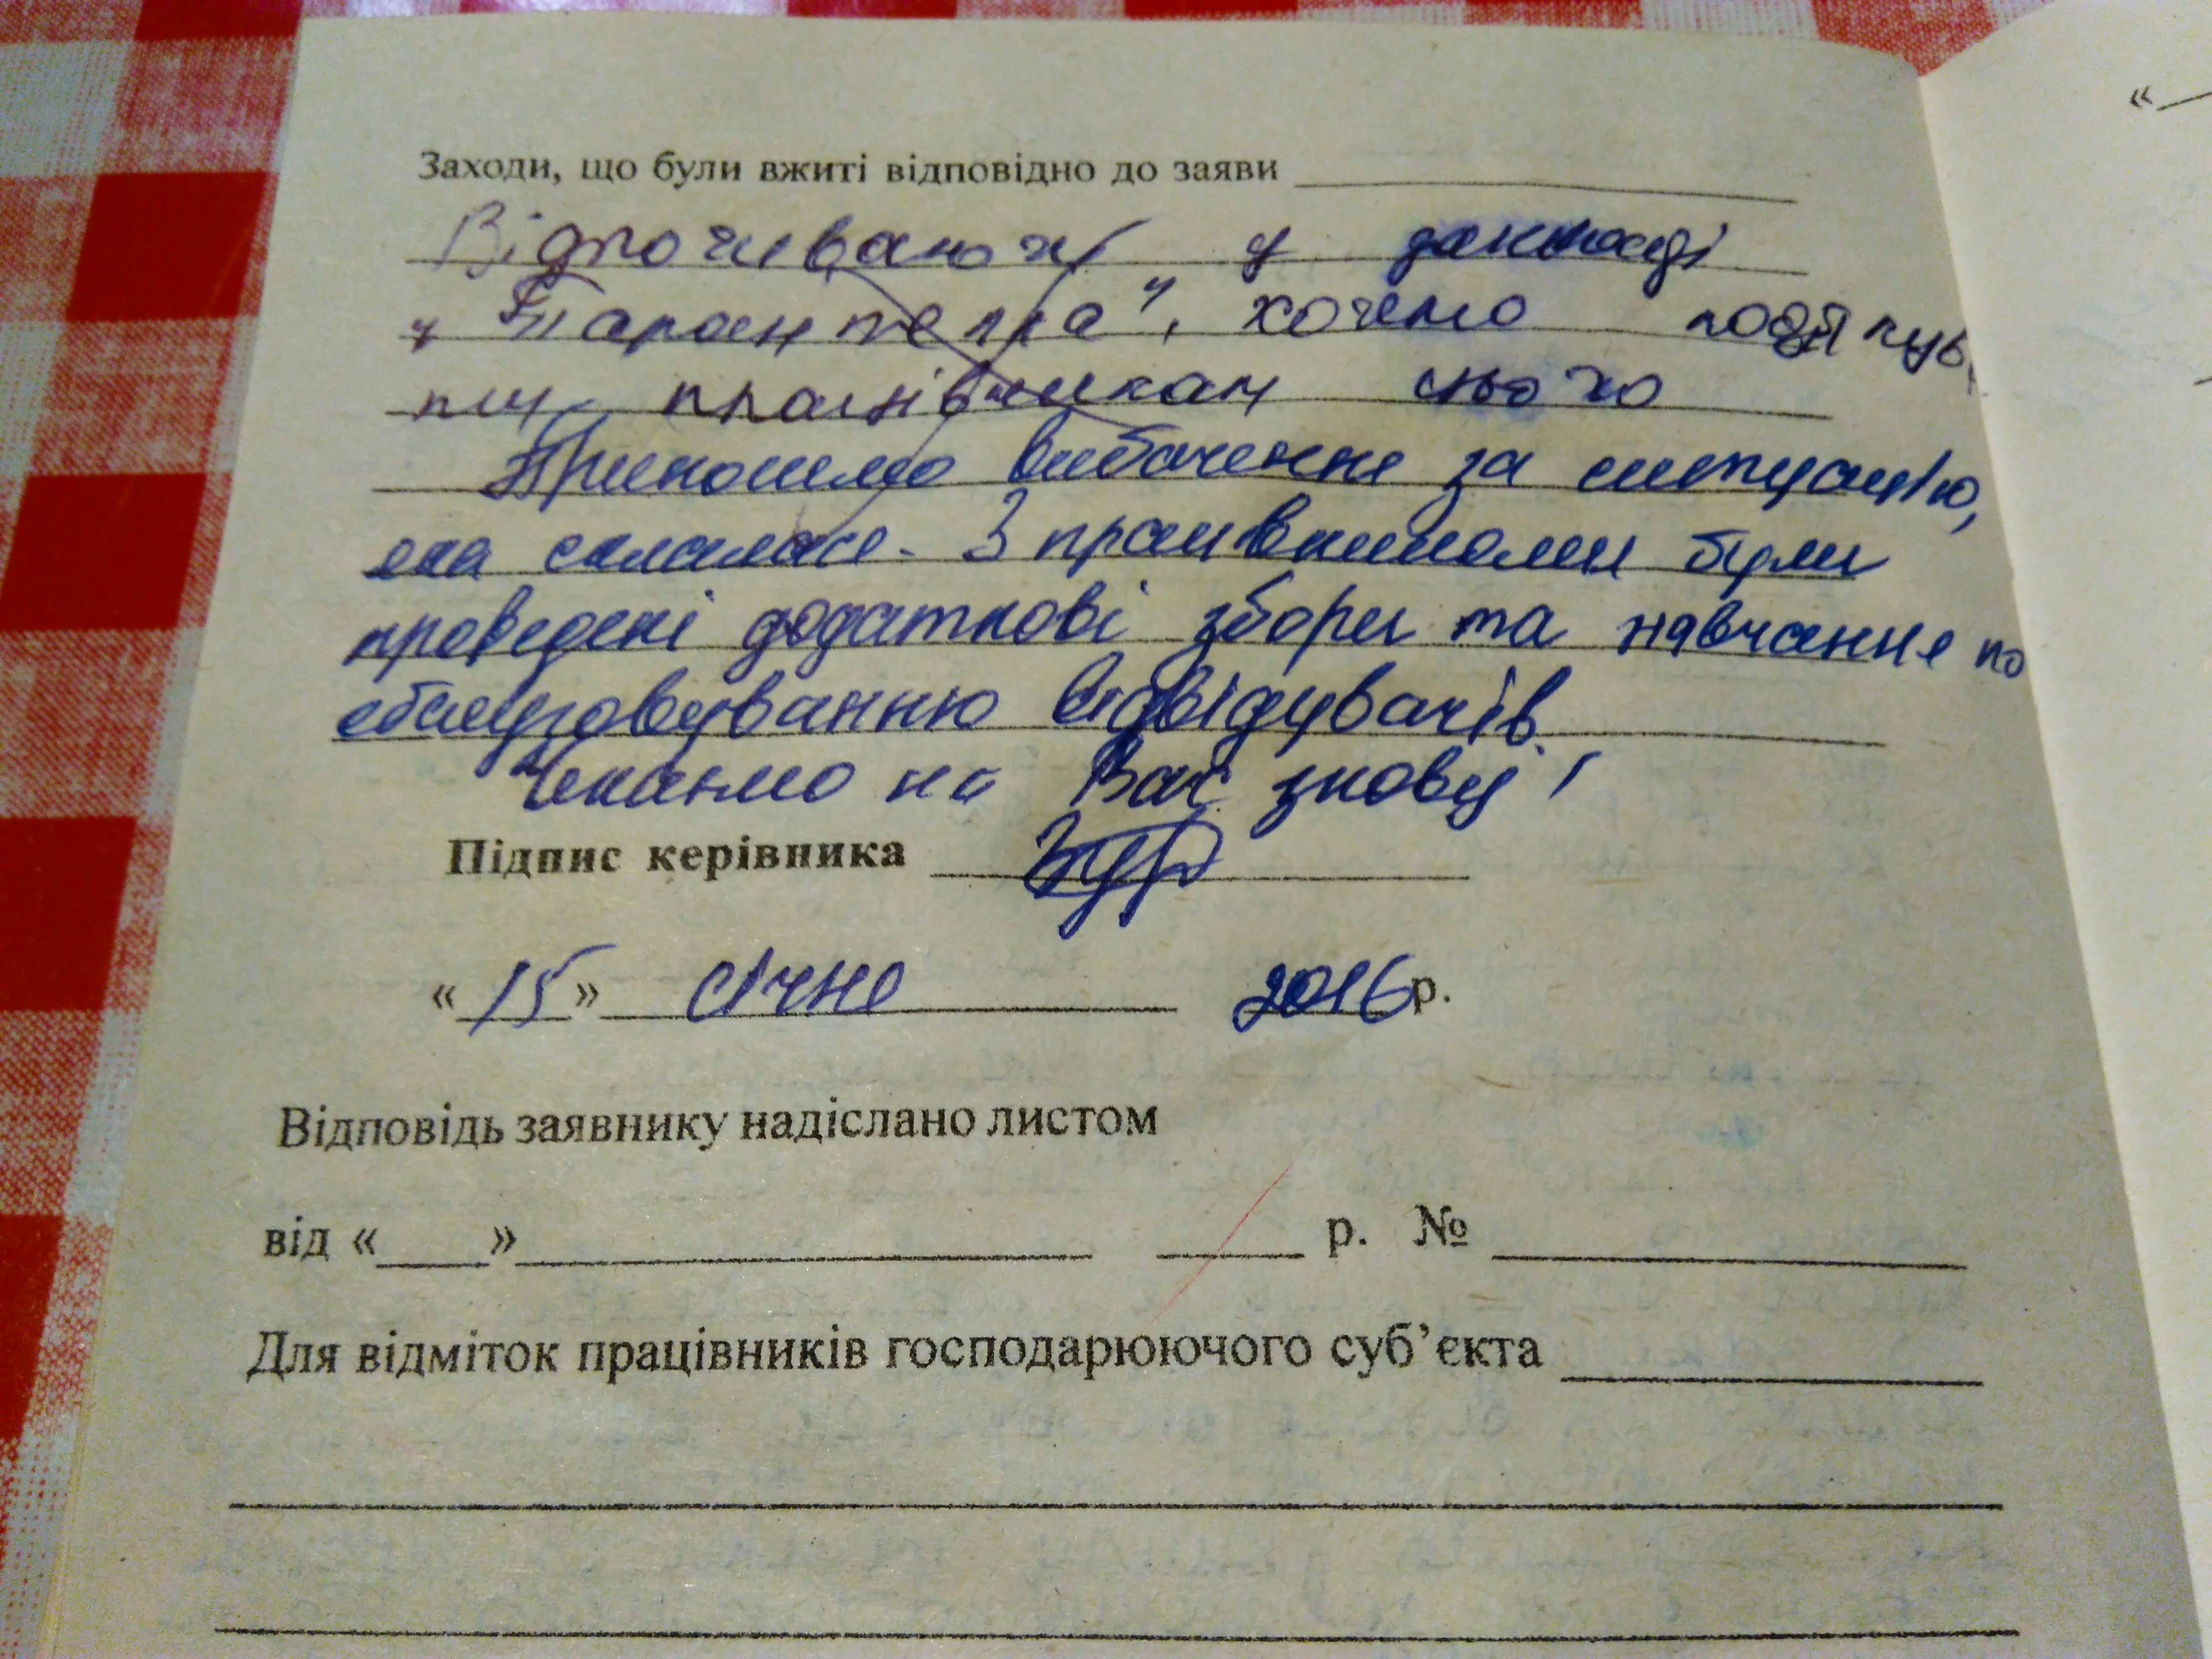 Заходи, що були вжиті відповідно до заяви
Відпочиваючи у закладі
"Тарантелла", хочемо подякува
ти працівникам цього
Приносимо вибачення за ситуацію,
яка склалася. З працівниками були
проведені додаткові збори та навчання по
обслуговуванню відвідувачів.
Чекаємо на Вас знову!
Підпис керівника
«15» січня 2016 р.
Відповідь заявнику надіслано листом
від «___» ___ р. № ___
Для відміток працівників господарюючого суб'єкта
«